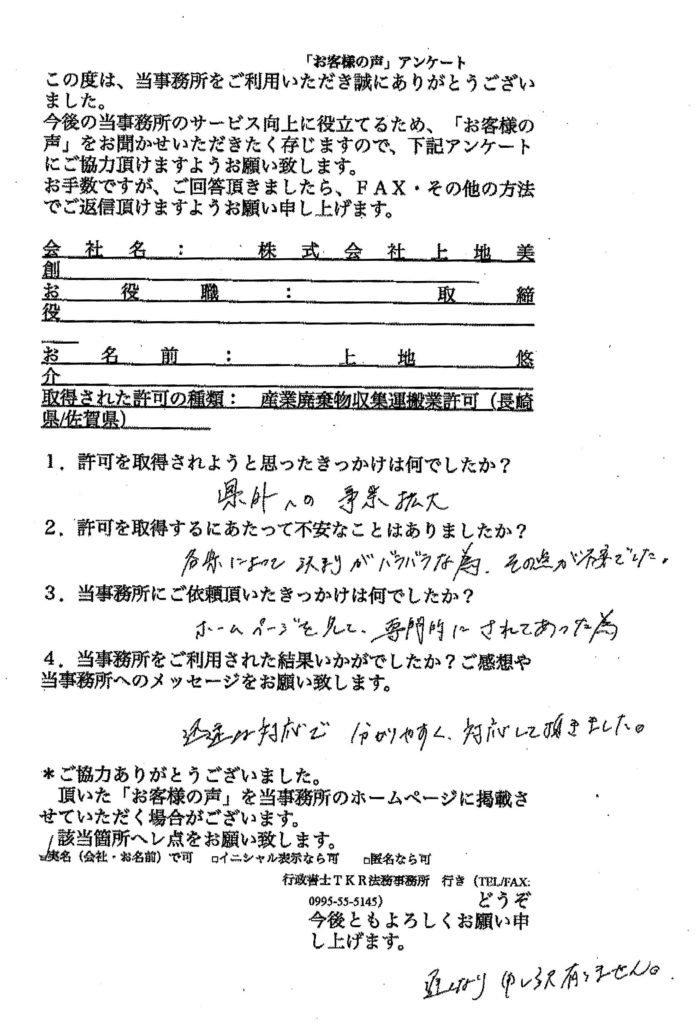 「お客様の声」アンケート
この度は、当事務所をご利用いただき誠にありがとうござい
ました。
今後の当事務所のサービス向上に役立てるため、「お客様の
声」をお聞かせいただきたく存じますので、下記アンケート
にご協力頂けますようお願い致します。
お手数ですが、ご回答頂きましたら、ＦＡＸ・その他の方法
でご返信頂けますようお願い申し上げます。
会社名： 株式会社上地美
創
お役職： 取締
役
お名前： 上地悠
介
取得された許可の種類： 産業廃棄物収集運搬業許可（長崎
県/佐賀県）
１．許可を取得されようと思ったきっかけは何でしたか？
県外への事業拡大
２．許可を取得するにあたって不安なことはありましたか？
各県によって決まりがバラバラな為、その点が不安でした。
３．当事務所にご依頼頂いたきっかけは何でしたか？
ホームページを見て、専門的にされてあった為
４．当事務所をご利用された結果いかがでしたか？ご感想や
当事務所へのメッセージをお願い致します。
迅速な対応で 分かりやすく、対応して頂きました。
＊ご協力ありがとうございました。
頂いた「お客様の声」を当事務所のホームページに掲載さ
せていただく場合がございます。
該当箇所へレ点をお願い致します。
□実名（会社・お名前）で可 □イニシャル表示なら可 □匿名なら可
行政書士ＴＫＲ法務事務所 行き（TEL/FAX:
0995-55-5145） どうぞ
今後ともよろしくお願い申
し上げます。
遅くなり申し訳有りません。